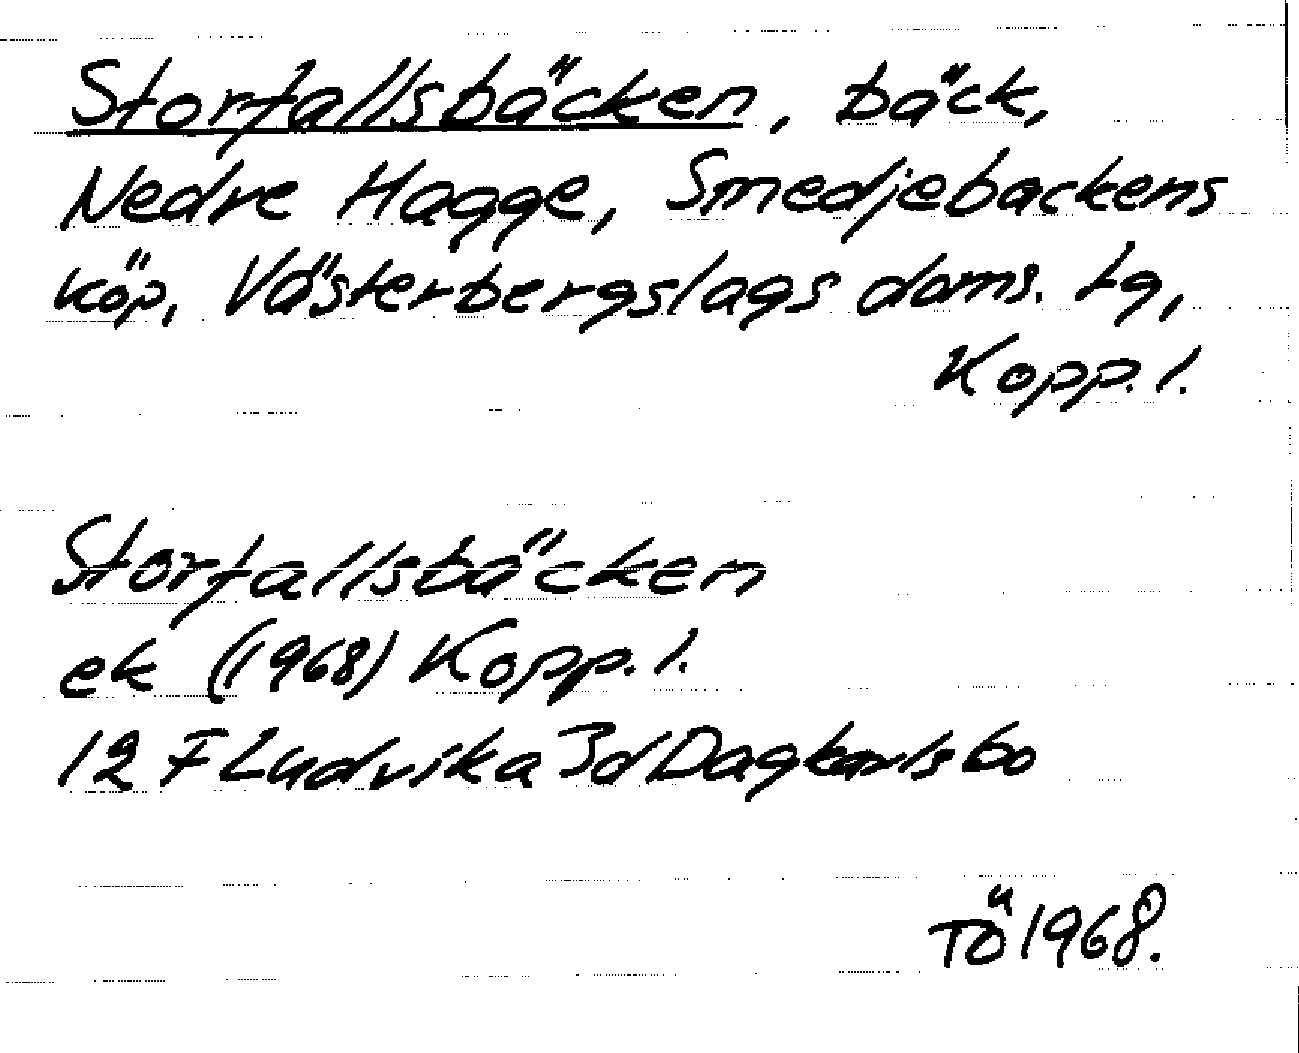 Storfallsbäcken, bäck,
Nedre Hagge, Smedjebackens
köp, Västerbergslags doms. tg,
Kopp. l.
Storfallsbäcken
ek (1968) Kopp. l.
12 F Ludvika 3d Dagkarlsbo
TÖ 1968.